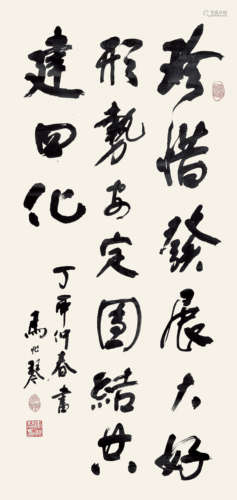 珍惜發展大好
形勢安定團結共
建四化
丁卯仲春書
馬
琴